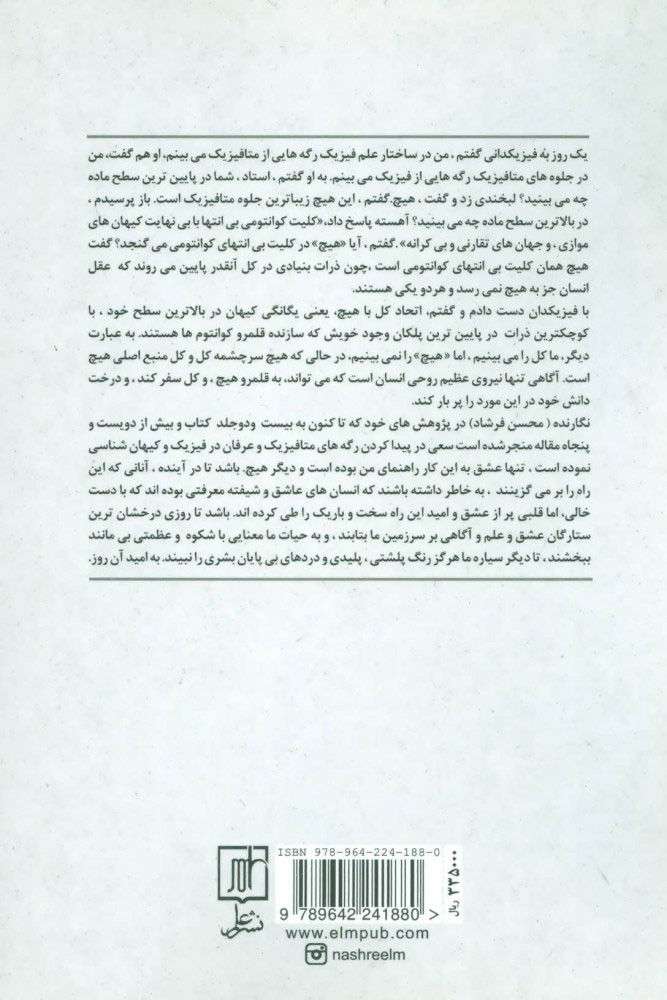 یک روز به فیزیکدانی گفتم ، من در ساختار علم فیزیک رگه هایی از متافیزیک می بینم، او هم گفت، من
در جلوه های متافیزیک رگه هایی از فیزیک می بینم. به او گفتم ، استاد ، شما در پایین ترین سطح ماده
چه می بینید؟ لبخندی زد و گفت ، هیچ.گفتم ، این هیچ زیباترین جلوه متافیزیک است. باز پرسیدم ،
در بالاترین سطح ماده چه می بینید؟ آهسته پاسخ داد،«کلیت کوانتومی بی انتها با بی نهایت کیهان های
موازی ، و جهان های تقارنی و بی کرانه» .گفتم ، آیا «هیچ» در کلیت بی انتهای کوانتومی می گنجد؟ گفت
هیچ همان کلیت بی انتهای کوانتومی است ،چون ذرات بنیادی در کل آنقدر پایین می روند که عقل
انسان جز به هیچ نمی رسد و هردو یکی هستند.
با فیزیکدان دست دادم و گفتم، اتحاد کل با هیچ، یعنی یگانگی کیهان در بالاترین سطح خود ، با
کوچکترین ذرات در پایین ترین پلکان وجود خویش که سازنده قلمرو کوانتوم ها هستند. به عبارت
دیگر، ما کل را می بینیم ، اما «هیچ» را نمی بینیم، در حالی که هیچ سرچشمه کل و کل منبع اصلی هیچ
است. آگاهی تنها نیروی عظیم روحی انسان است که می تواند، به قلمرو هیچ ، و کل سفر کند ، و درخت
دانش خود در این مورد را پر بار کند.
نگارنده ( محسن فرشاد) در پژوهش های خود که تا کنون به بیست ودوجلد کتاب و بیش از دویست و
پنجاه مقاله منجرشده است سعی در پیدا کردن رگه های متافیزیک و عرفان در فیزیک و کیهان شناسی
نموده است ، تنها عشق به این کار راهنمای من بوده است و دیگر هیچ. باشد تا در آینده ، آنانی که این
راه را بر می گزینند ، به خاطر داشته باشند که انسان های عاشق و شیفته معرفتی بوده اند که با دست
خالی، اما قلبی پر از عشق و امید این راه سخت و باریک را طی کرده اند. باشد تا روزی درخشان ترین
ستارگان عشق و علم و آگاهی بر سرزمین ما بتابند ، و به حیات ما معنایی با شکوه و عظمتی بی مانند
ببخشند ، تا دیگر سیاره ما هرگز رنگ پلشتی ، پلیدی و دردهای بی پایان بشری را نبیند. به امید آن روز.
ISBN 978-964-224-188-0
9 789642 241880 >
۳۳۵۰۰۰ ریال
نشر علم
www.elmpub.com
nashreelm